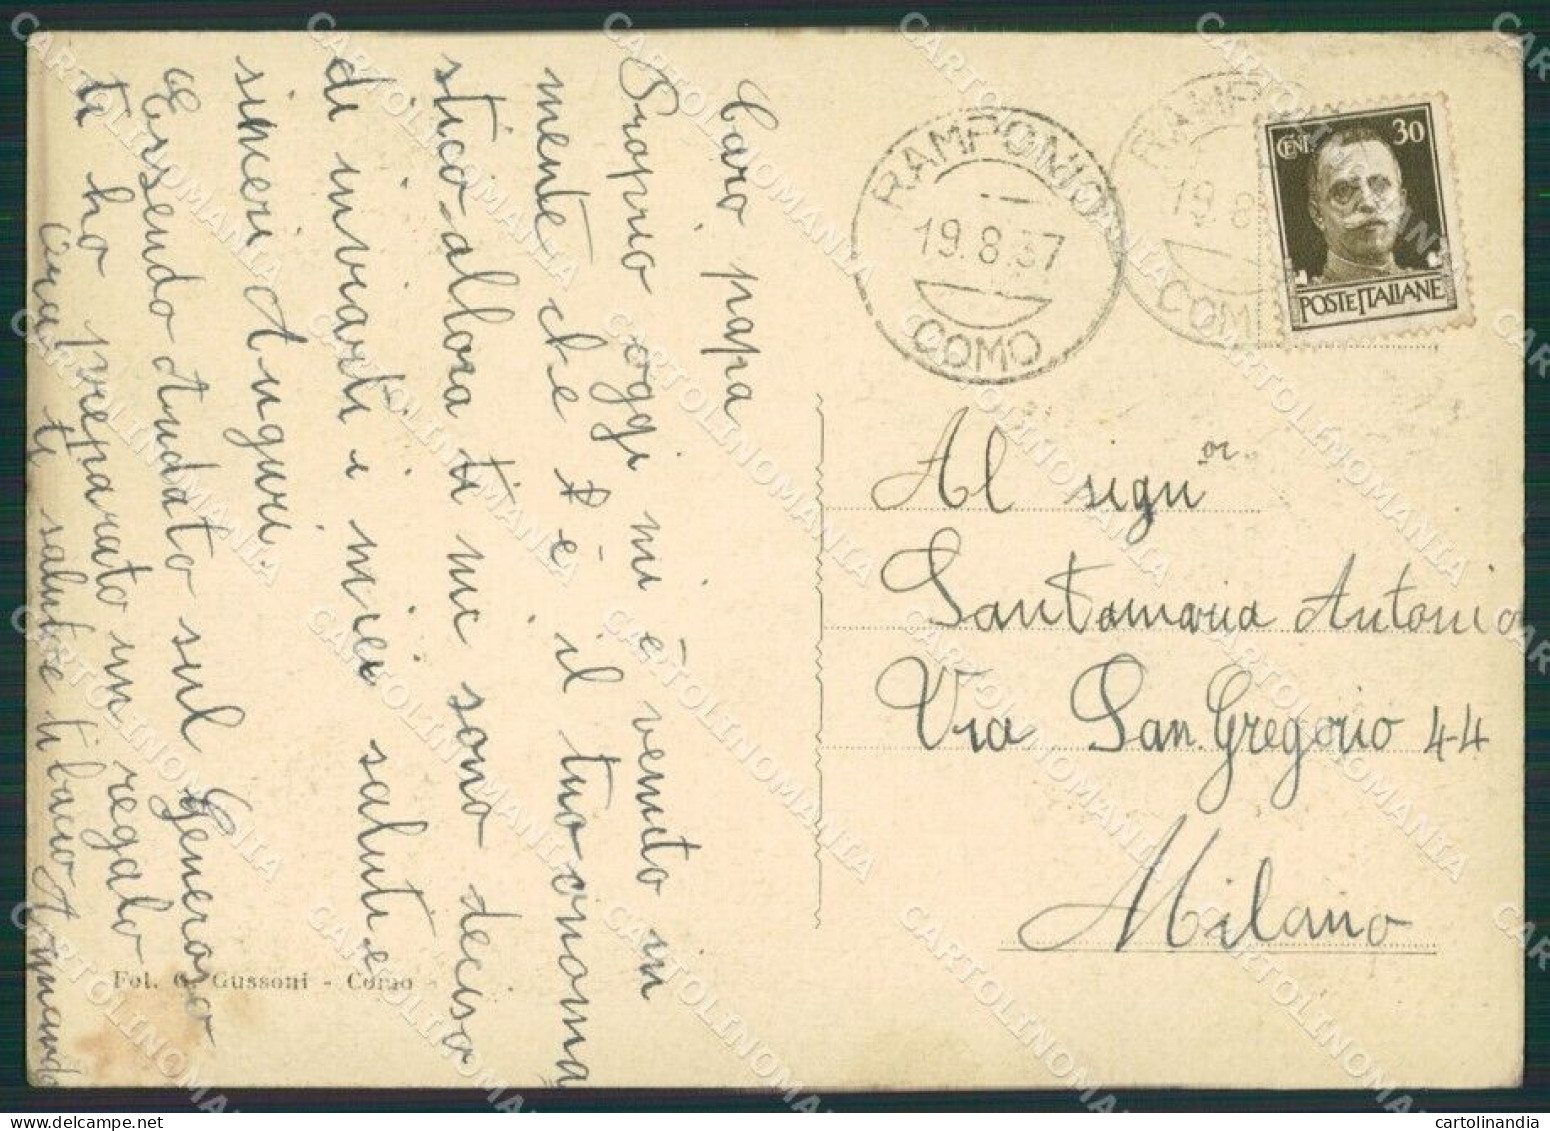 Caro papa
Proprio oggi mi è venuto in
mente che è il tuo onoma
stico allora ti me sono deciso
di inviarti i miei saluti e
sinceri Auguri.
Essendo Andato sul Generoso
ti ho preparato un regalo
Ora ti saluto e ti bacio Armando
Fot. G. Gussoni - Como
RAMPONIO
19.8.37
COMO
RAMP
19.8
COM
CENT. 30
POSTE ITALIANE
Al signor.
Santamaria Antonio
Via San. Gregorio 44
Milano
CARTOLINOMANIA
cartolinandia